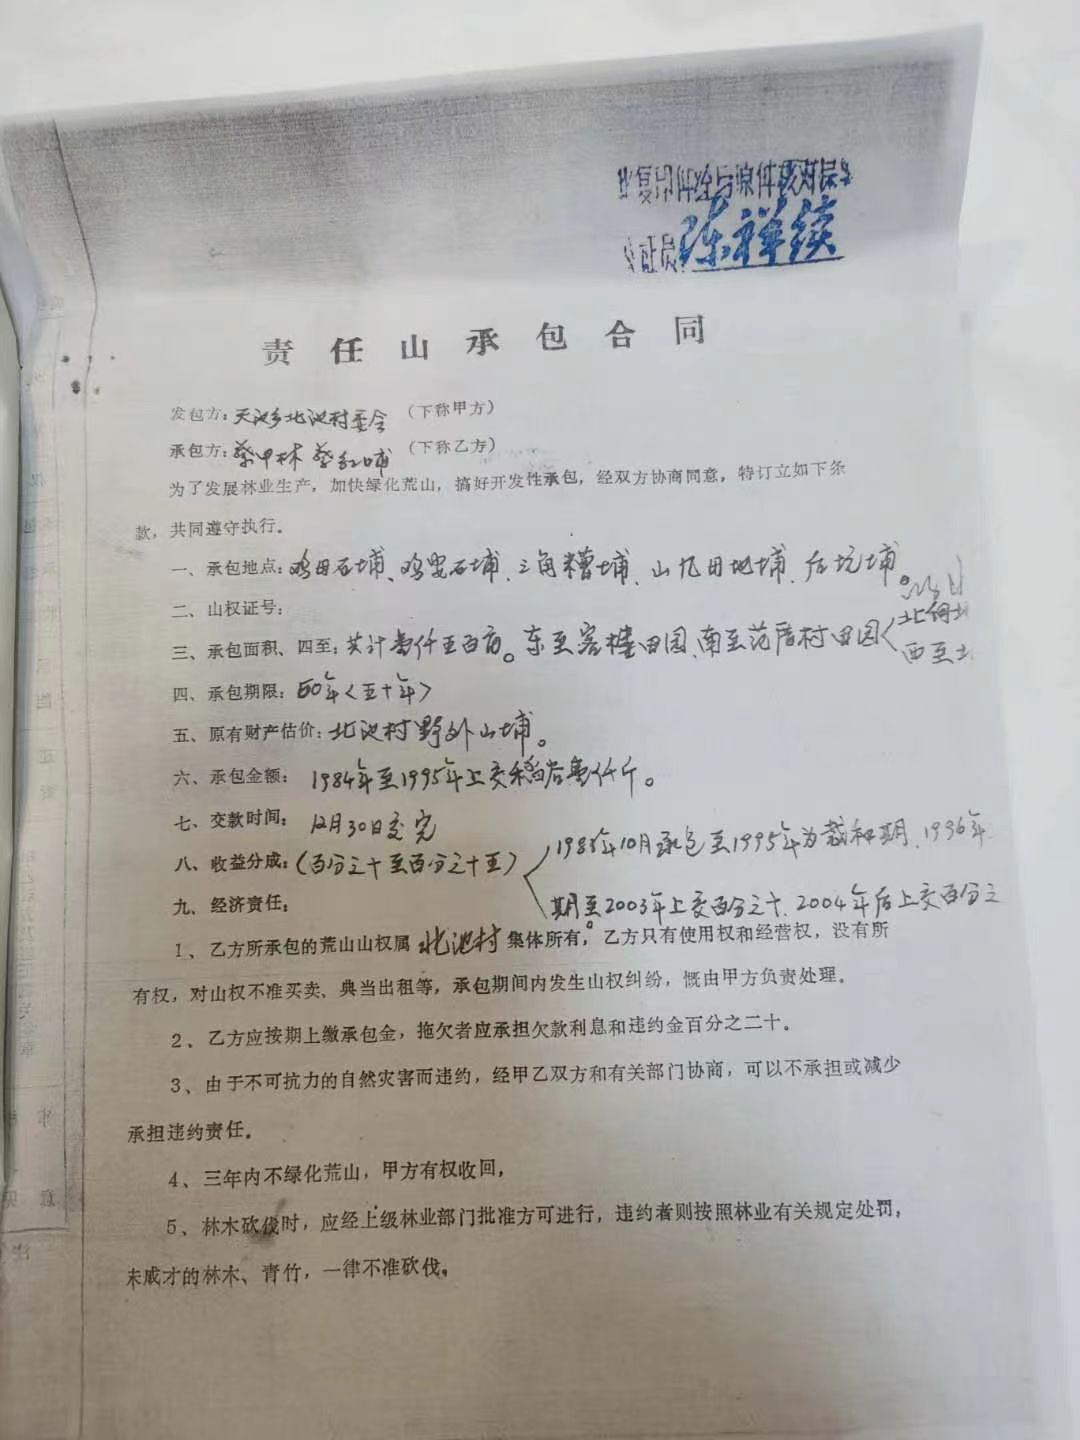 复印件经与原件核对
证员 陈祥续
责任山承包合同
发包方：天池乡北池村委会（下称甲方）
承包方：蔡甲林 蔡红埔（下称乙方）
为了发展林业生产，加快绿化荒山，搞好开发性承包，经双方协商同意，特订立如下条
款，共同遵守执行。
一、承包地点：鸡母石埔、鸡 石埔、三角糟埔、山 田地埔、后坑埔。
二、山权证号：
三、承包面积、四至：共计 仟五百亩。东至客楼田园、南至 厝村田园
西至
四、承包期限：50年〈五十年〉
五、原有财产估价：北池村野外山埔。
六、承包金额：1984年至1995年上交稻谷 仟斤。
七、交款时间：12月30日交完
八、收益分成：（百分之十至百分之十五） 1985年10月承包至1995年为栽种期、1996年
期至2003年上交百分之十、2004年后上交百分之
九、经济责任：
1、乙方所承包的荒山山权属北池村集体所有，乙方只有使用权和经营权，没有所
有权，对山权不准买卖、典当出租等，承包期间内发生山权纠纷，慨由甲方负责处理。
2、乙方应按期上缴承包金，拖欠者应承担欠款利息和违约金百分之二十。
3、由于不可抗力的自然灾害而违约，经甲乙双方和有关部门协商，可以不承担或减少
承担违约责任。
4、三年内不绿化荒山，甲方有权收回，
5、林木砍伐时，应经上级林业部门批准方可进行，违约者则按照林业有关规定处罚，
未成才的林木、青竹，一律不准砍伐。